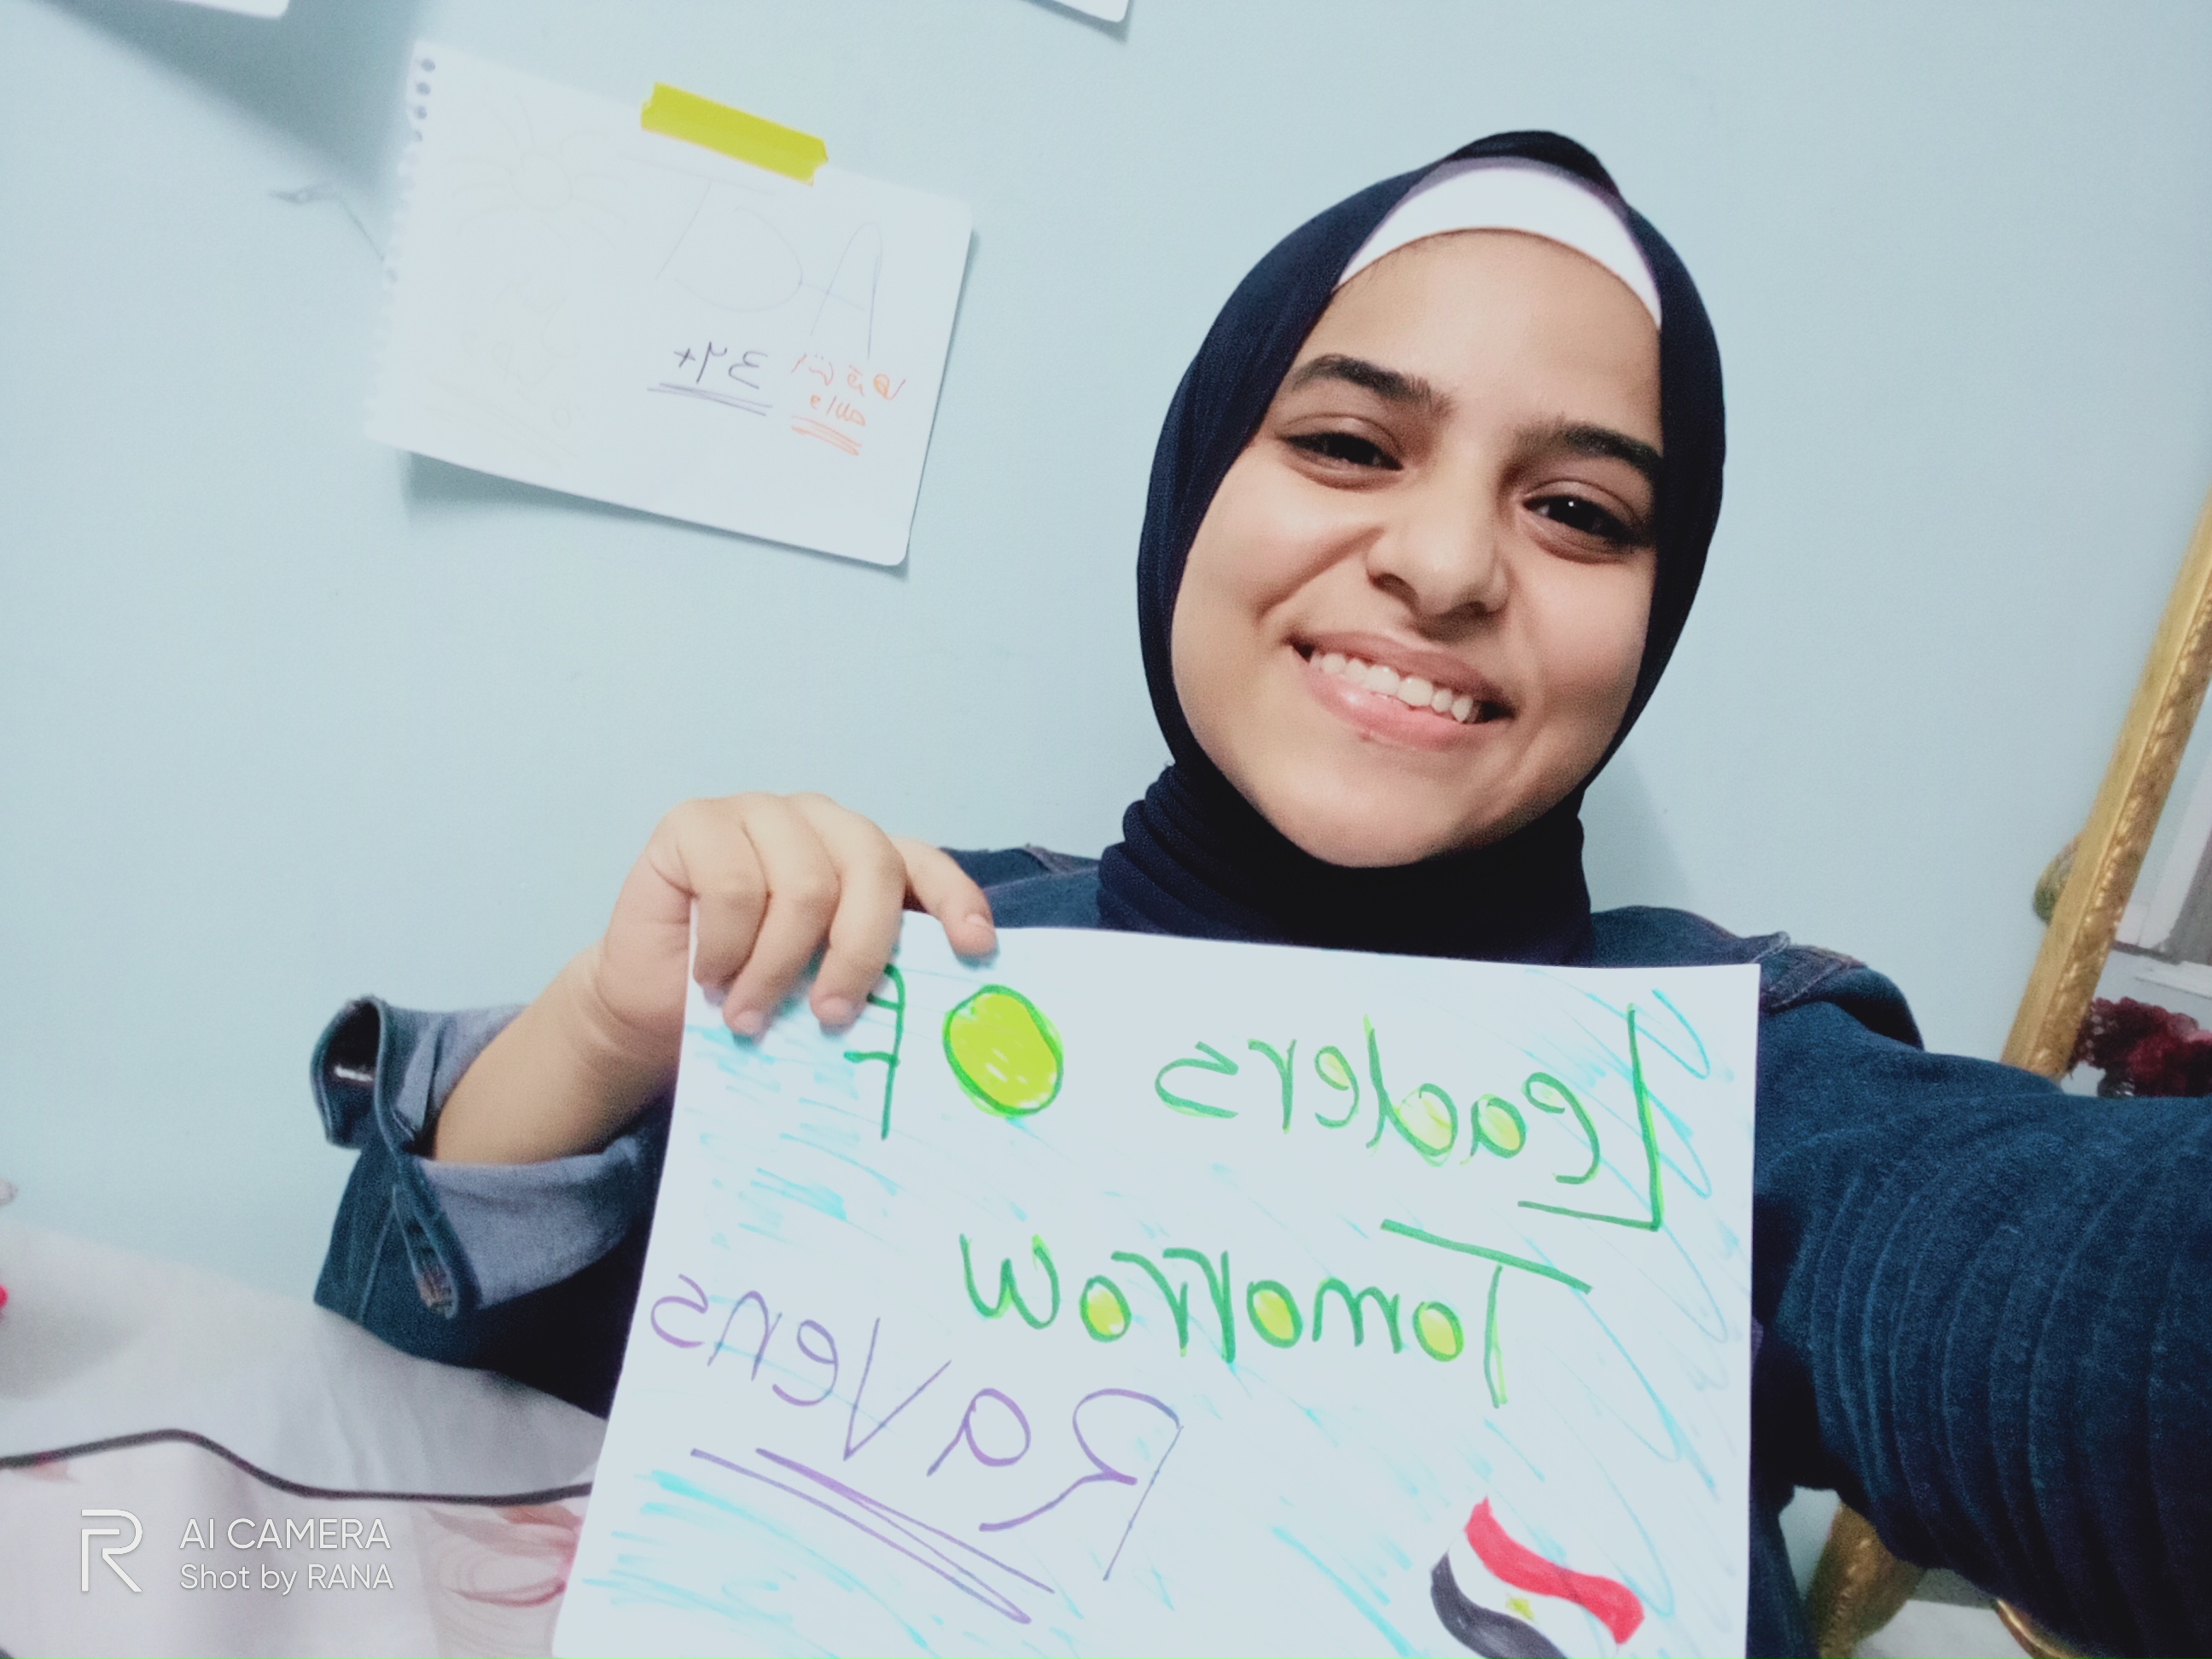 TDA
34+
Leaders OF
Tomorrow
Ravens
R AI CAMERA
Shot by RANA